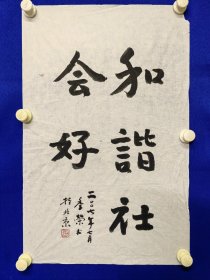 和諧社
会好
二〇〇七年七月
於北京